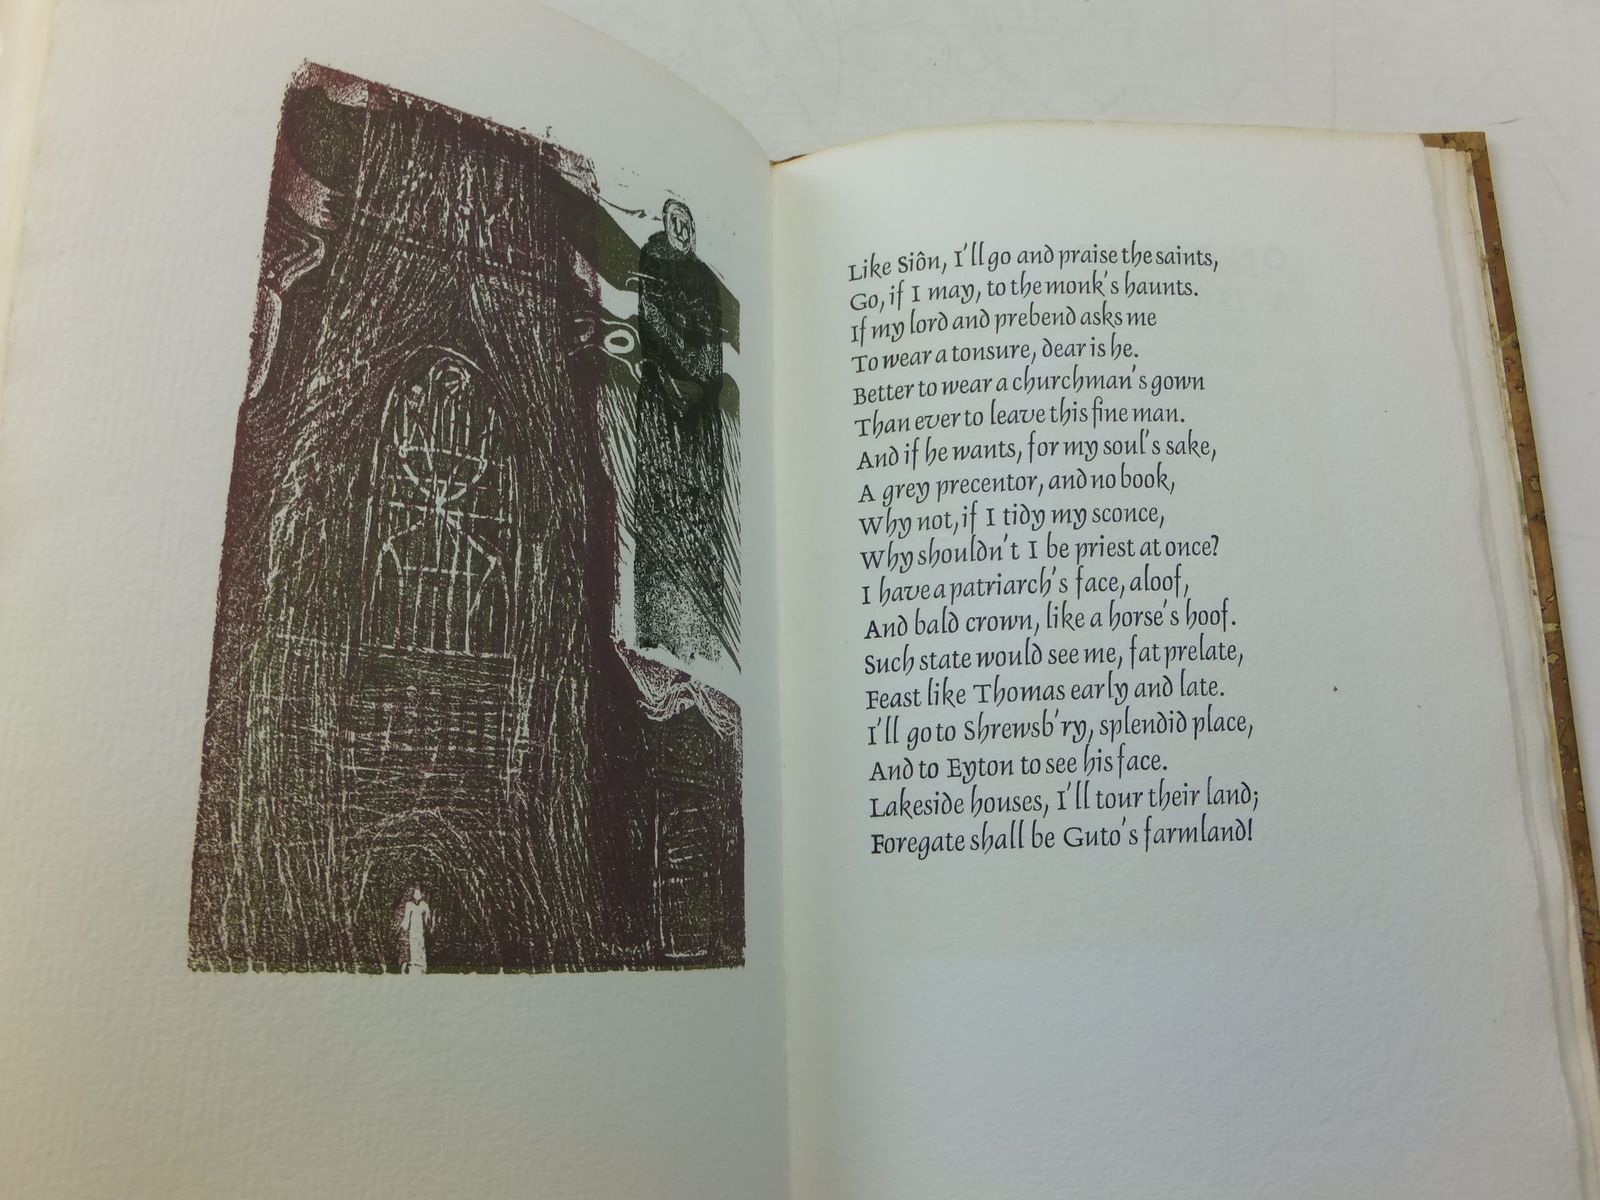 Like Siôn, I'll go and praise the saints,
Go, if I may, to the monk's haunts.
If my lord and prebend asks me
To wear a tonsure, dear is he.
Better to wear a churchman's gown
Than ever to leave this fine man.
And if he wants, for my soul's sake,
A grey precentor, and no book,
Why not, if I tidy my sconce,
Why shouldn't I be priest at once?
I have a patriarch's face, aloof,
And bald crown, like a horse's hoof.
Such state would see me, fat prelate,
Feast like Thomas early and late.
I'll go to Shrewsb'ry, splendid place,
And to Eyton to see his face.
Lakeside houses, I'll tour their land;
Foregate shall be Guto's farmland!